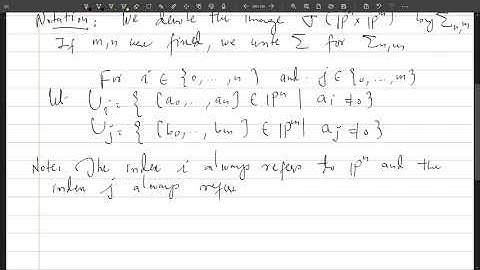 Notation: We denote the image σ(ℙⁿ × ℙᵐ) by Σn,m
If m,n are fixed, we write Σ for Σn,m
For i ∈ {0,...,n} and j ∈ {0,...,m}
Let Ui = { (a0,..,an) ∈ ℙⁿ | ai ≠ 0}
Uj = { (b0,..., bm) ∈ ℙᵐ | aj ≠ 0}
Note: The index i always refers to ℙⁿ and the
index j always refere